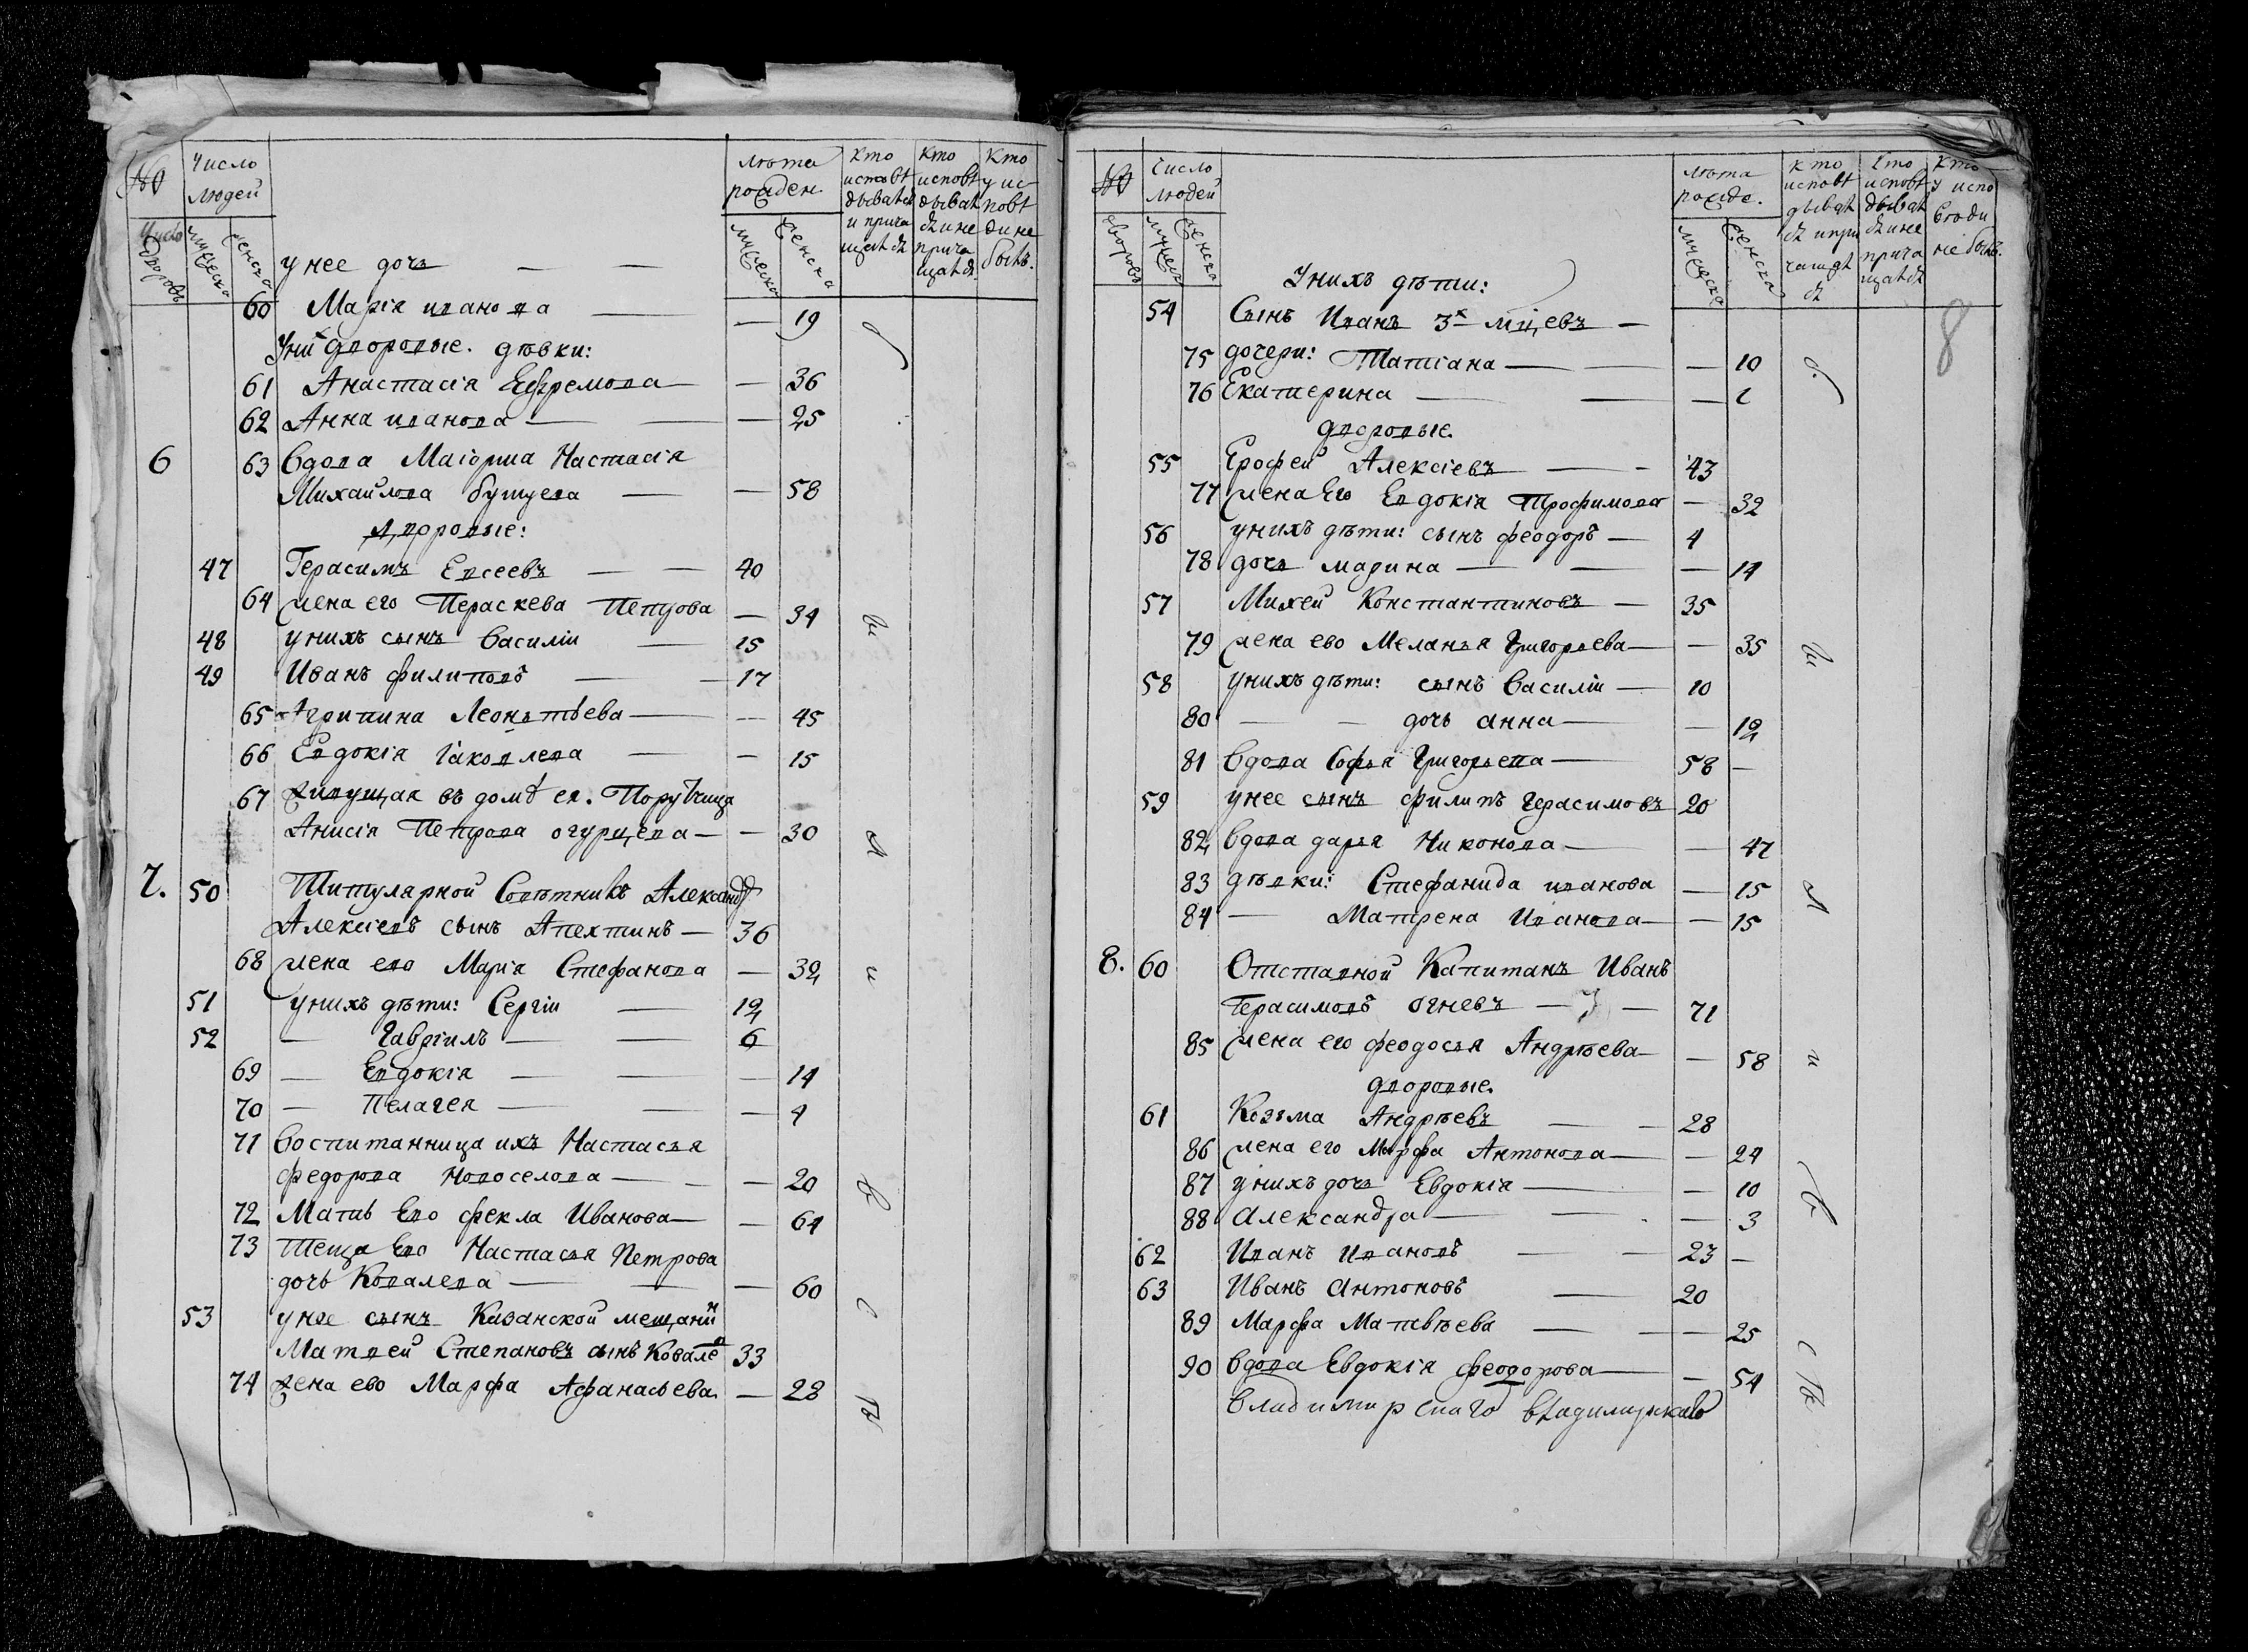 № Число людей лѣта рожден. кто исповѣдыватся и причащатся кто исповѣдыватся и не причащатся Кто у исповѣди не бытъ.
Число дворовъ мужеска женска мужеска женска
у нее дочь — —
60 Марія иванова — — 19
У них дворовые. дѣвки:
61 Анастасія Ефремова — — 36
62 Анна иванова — — — 25
6 63 Вдова Маіорша Настасія
Михайлова бутуева — — 58
дворовые:
47 Герасимъ Евсеевъ — — 40
64 жена его Параскева Петрова — 34
48 у нихъ сынъ Василіи — 15
49 Иванъ филиповъ — — 17
65 Агрипина Леонтьева — — 45
66 Евдокія Іаковлева — — 15
67 живущая въ домѣ ея. Порутчица
Анисія Петрова огурцева — — 30
7. 50 Титулярной Советникъ Александр
Алексіевъ сынъ Апехтинъ — 36
68 жена ево Марія Стефанова — 32
51 у нихъ дѣти: Сергіи — 12
52 — Гавріилъ — — 6
69 — Евдокія — — — 14
70 — Пелагея — — — 4
71 Воспитанница ихъ Настасья
федорова новоселова — — — 20
72 Мать Ево фекла Иванова — — 64
73 Теща Ево Настасья Петрова
дочь Ковалева — — — 60
53 у нее сынъ Казанской мещанин
Матвеи Степановъ сынъ Ковалев 33
74 жена ево Марфа Афанасьева. — 28
№ Число людей лѣта рожде. кто исповѣдыватся и причащатся Кто исповѣдыватся и не причащатся кто у исповѣди не бытъ.
дворовъ мужеска женска мужеска женска
8
У нихъ дѣти:
54 Сынъ Иванъ 3х мцевъ —
75 дочери: Татіана — — — 10
76 Екатерина — — —
дворовые.
55 Ерофеи Алексіевъ — — 43
77 жена Его Евдокія Трофимова — 32
56 у нихъ дѣти: сынъ феодоръ — 4
78 дочь марина — — — 14
57 Михеи Константиновъ — 35
79 жена ево Меланья Григорьева — — 35
58 у нихъ дѣти: сынъ Василіи — 10
80 — — дочь анна — — 12
81 Вдова Софья Григорьева — 58 —
59 у нее сынъ филипъ Герасимовъ 20
82 Вдова дарья Никонова — — 47
83 дѣвки: Стефанида иванова — 15
84 — Матрена Иванова — — 15
8. 60 Отставной Капитанъ Иванъ
Герасимовъ огневъ — — 71
85 жена его феодосья Андрѣева — — 58
дворовые.
61 Козьма Андрѣевъ — — 28
86 жена его Марфа Антонова — — 24
87 у нихъ дочь Евдокія — — 10
88 Александра — — — 3
62 Иванъ ивановъ — — 23 —
63 Иванъ антоновъ — 20
89 Марфа Матвѣева — — — 25
90 Вдова Евдокія феодорова — — 54
Владимирскаго владимирскаго